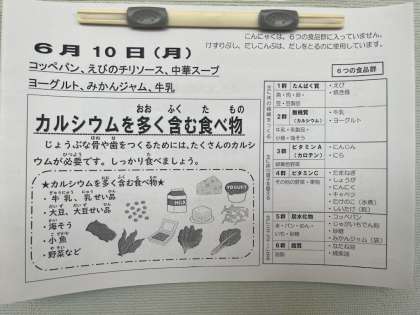 こんにゃくは、6つの食品群に入っていません。
けずりぶし、だしこんぶは、だしをとるのに使用しています。
6月10日(月)
コッペパン、えびのチリソース、中華スープ
ヨーグルト、みかんジャム、牛乳
カルシウムを多く含む食べ物
おお ふく た もの
じょうぶな骨や歯をつくるためには、たくさんのカルシ
ウムが必要です。しっかり食べましょう。
★カルシウムを多く含む食べ物★
・牛乳、乳せい品
・大豆、大豆せい品
・海そう
・小魚
・野菜など
MILK
YOGURT
6つの食品群
1群 たんぱく質
・えび
2群 無機質
(カルシウム)
・牛乳
・ヨーグルト
3群 ビタミンA
(カロテン)
・にんじん
・にら
緑黄色野菜
4群 ビタミンC
その他の野菜・果物
・たまねぎ
・しょうが
・にんにく
・キャベツ
・たけのこ(水煮)
・しいたけ(乾)
5群 炭水化物
・コッペパン
・じゃがいもでん粉
・砂糖
・みかんジャム(袋)
6群 脂質
・なたね油